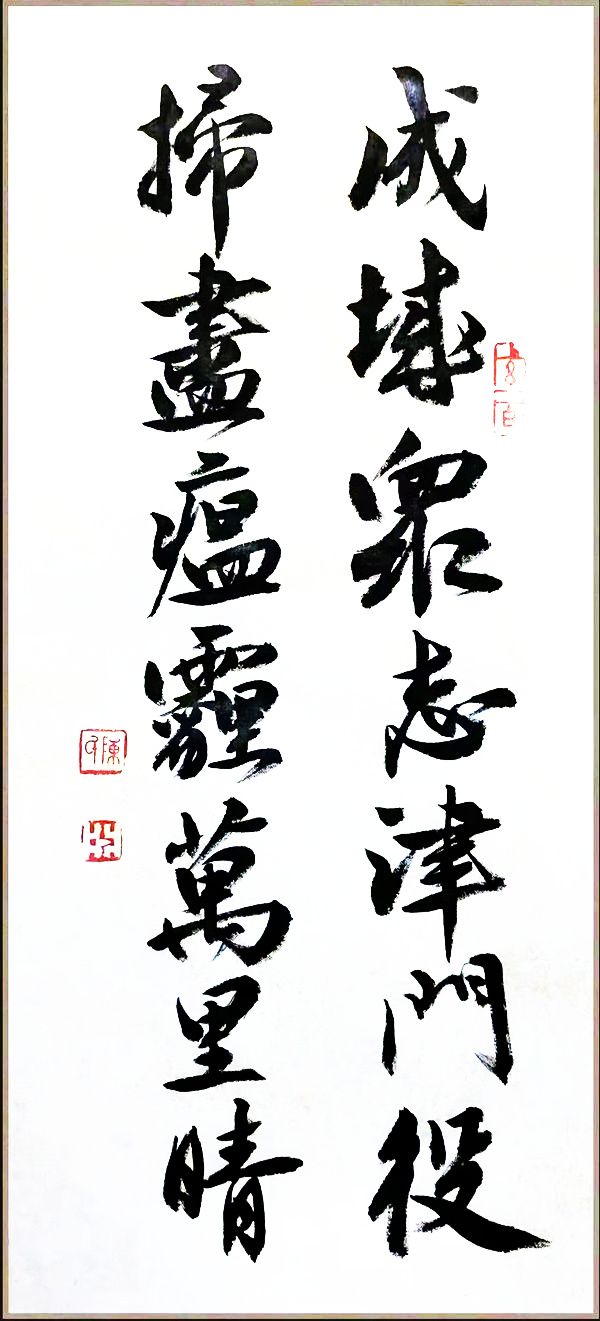 成城眾志津門役
掃盡瘟霾萬里晴